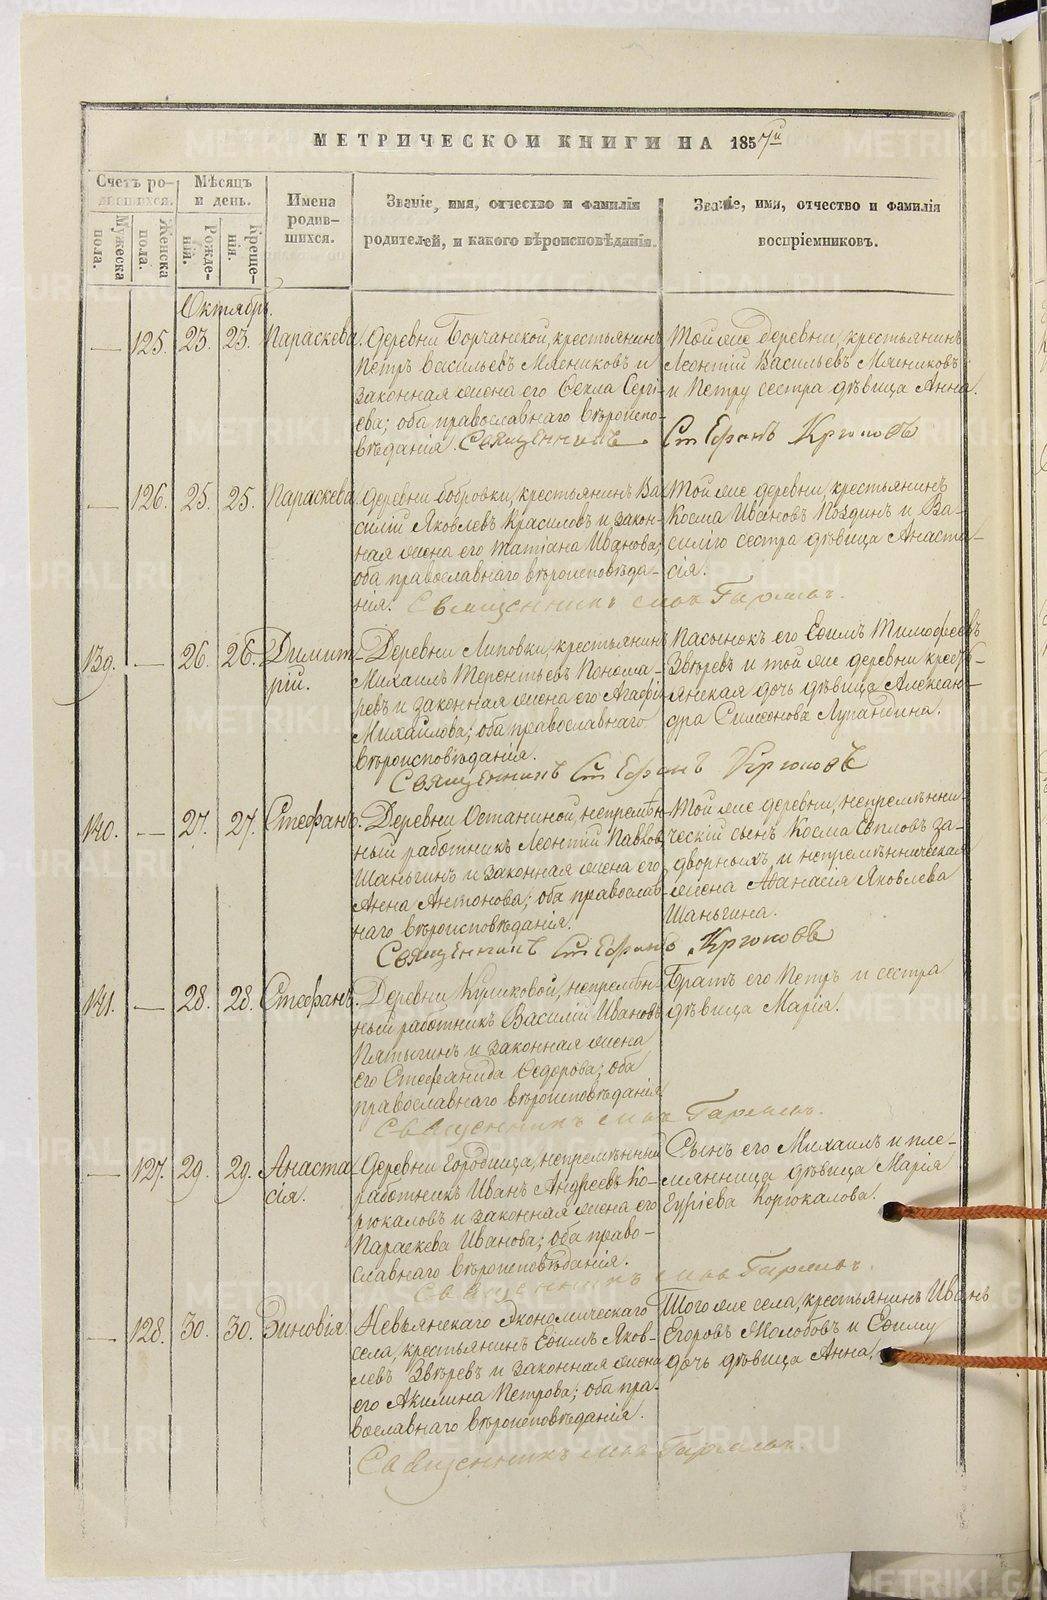 МЕТРИЧЕСКОЙ КНИГИ НА 1857й
Счетъ ро-
дившихся.
Мужеска
пола.
Женска
пола.
Мѣсяцъ
и день.
Рожде-
нія.
Креще-
нія.
Имена
родив-
шихся.
Званіе, имя, отчество и фамилія
родителей, и какого вѣроисповѣданія.
Званіе, имя, отчество и фамилія
воспріемниковъ.
Октябрь.
— 125. 23. 23. Параскева.
Деревни Борчанской, крестьянинъ
Петръ Васильевъ Мягниковъ и
законная жена его Фекла Серги-
ева; оба православнаго вѣроиспо-
вѣданія. Священникъ Стефанъ Крюковъ
Той же деревни, крестьянинъ
Леонтій Васильевъ Мягниковъ
и Петру сестра дѣвица Анна.
— 126. 25. 25. Параскева.
Деревни Бобровки, крестьянинъ Ва-
силій Яковлевъ Красиловъ и закон-
ная жена его Татіана Иванова;
оба православнаго вѣроисповѣда-
нія. Священникъ
Той же деревни, крестьянинъ
Косма Ивановъ Поздинъ и Ва-
силію сестра дѣвица Анаста-
сія.
139. — 26. 26. Димит-
рій.
Деревни Липовки, крестьянинъ
Михаилъ Терентьевъ Понома-
ревъ и законная жена его Агафія
Михайлова; оба православнаго
вѣроисповѣданія.
Священникъ Стефанъ Крюковъ
Пасынокъ его Ефимъ Тимофеевъ
Звѣревъ и той же деревни кресть-
янская дочь дѣвица Алексан-
дра Симеонова Лупандина.
140. — 27. 27. Стефанъ.
Деревни Останиной, непремѣн-
ный работникъ Леонтій Павловъ
Шаньгинъ и законная жена его
Анна Антонова; оба православ-
наго вѣроисповѣданія.
Священникъ Стефанъ Крюковъ
Той же деревни, непремѣнни-
ческій сынъ Косма За-
дворныхъ и непремѣнническая
жена Афанасія Яковлева
Шаньгина.
141. — 28. 28. Стефанъ.
Деревни Куликовой, непремѣн-
ный работникъ Василій Ивановъ
Пятыгинъ и законная жена
его Стефанида Ѳедорова; оба
православнаго вѣроисповѣданія
Священникъ
Братъ его Петръ и сестра
дѣвица Марія.
— 127. 29. 29. Анаста
сія.
Деревни Городища, непремѣнный
работникъ Иванъ Андреевъ Ко-
рюкаловъ и законная жена его
Параскева Иванова; оба право-
славнаго вѣроисповѣданія.
Священникъ
Сынъ его Михаилъ и пле-
мянница дѣвица Марія
Гуріева Корюкалова.
— 128. 30. 30. Зиновія.
Невьянскаго Экономическаго
села, крестьянинъ Ефимъ Яков-
левъ Звѣревъ и законная жена
его Акилина Петрова; оба пра-
вославнаго вѣроисповѣданія.
Священникъ
Того же села, крестьянинъ Иванъ
Егоровъ Молобовъ и Ефиму
дочь дѣвица Анна.
METRIKI.GASO-URAL.RU